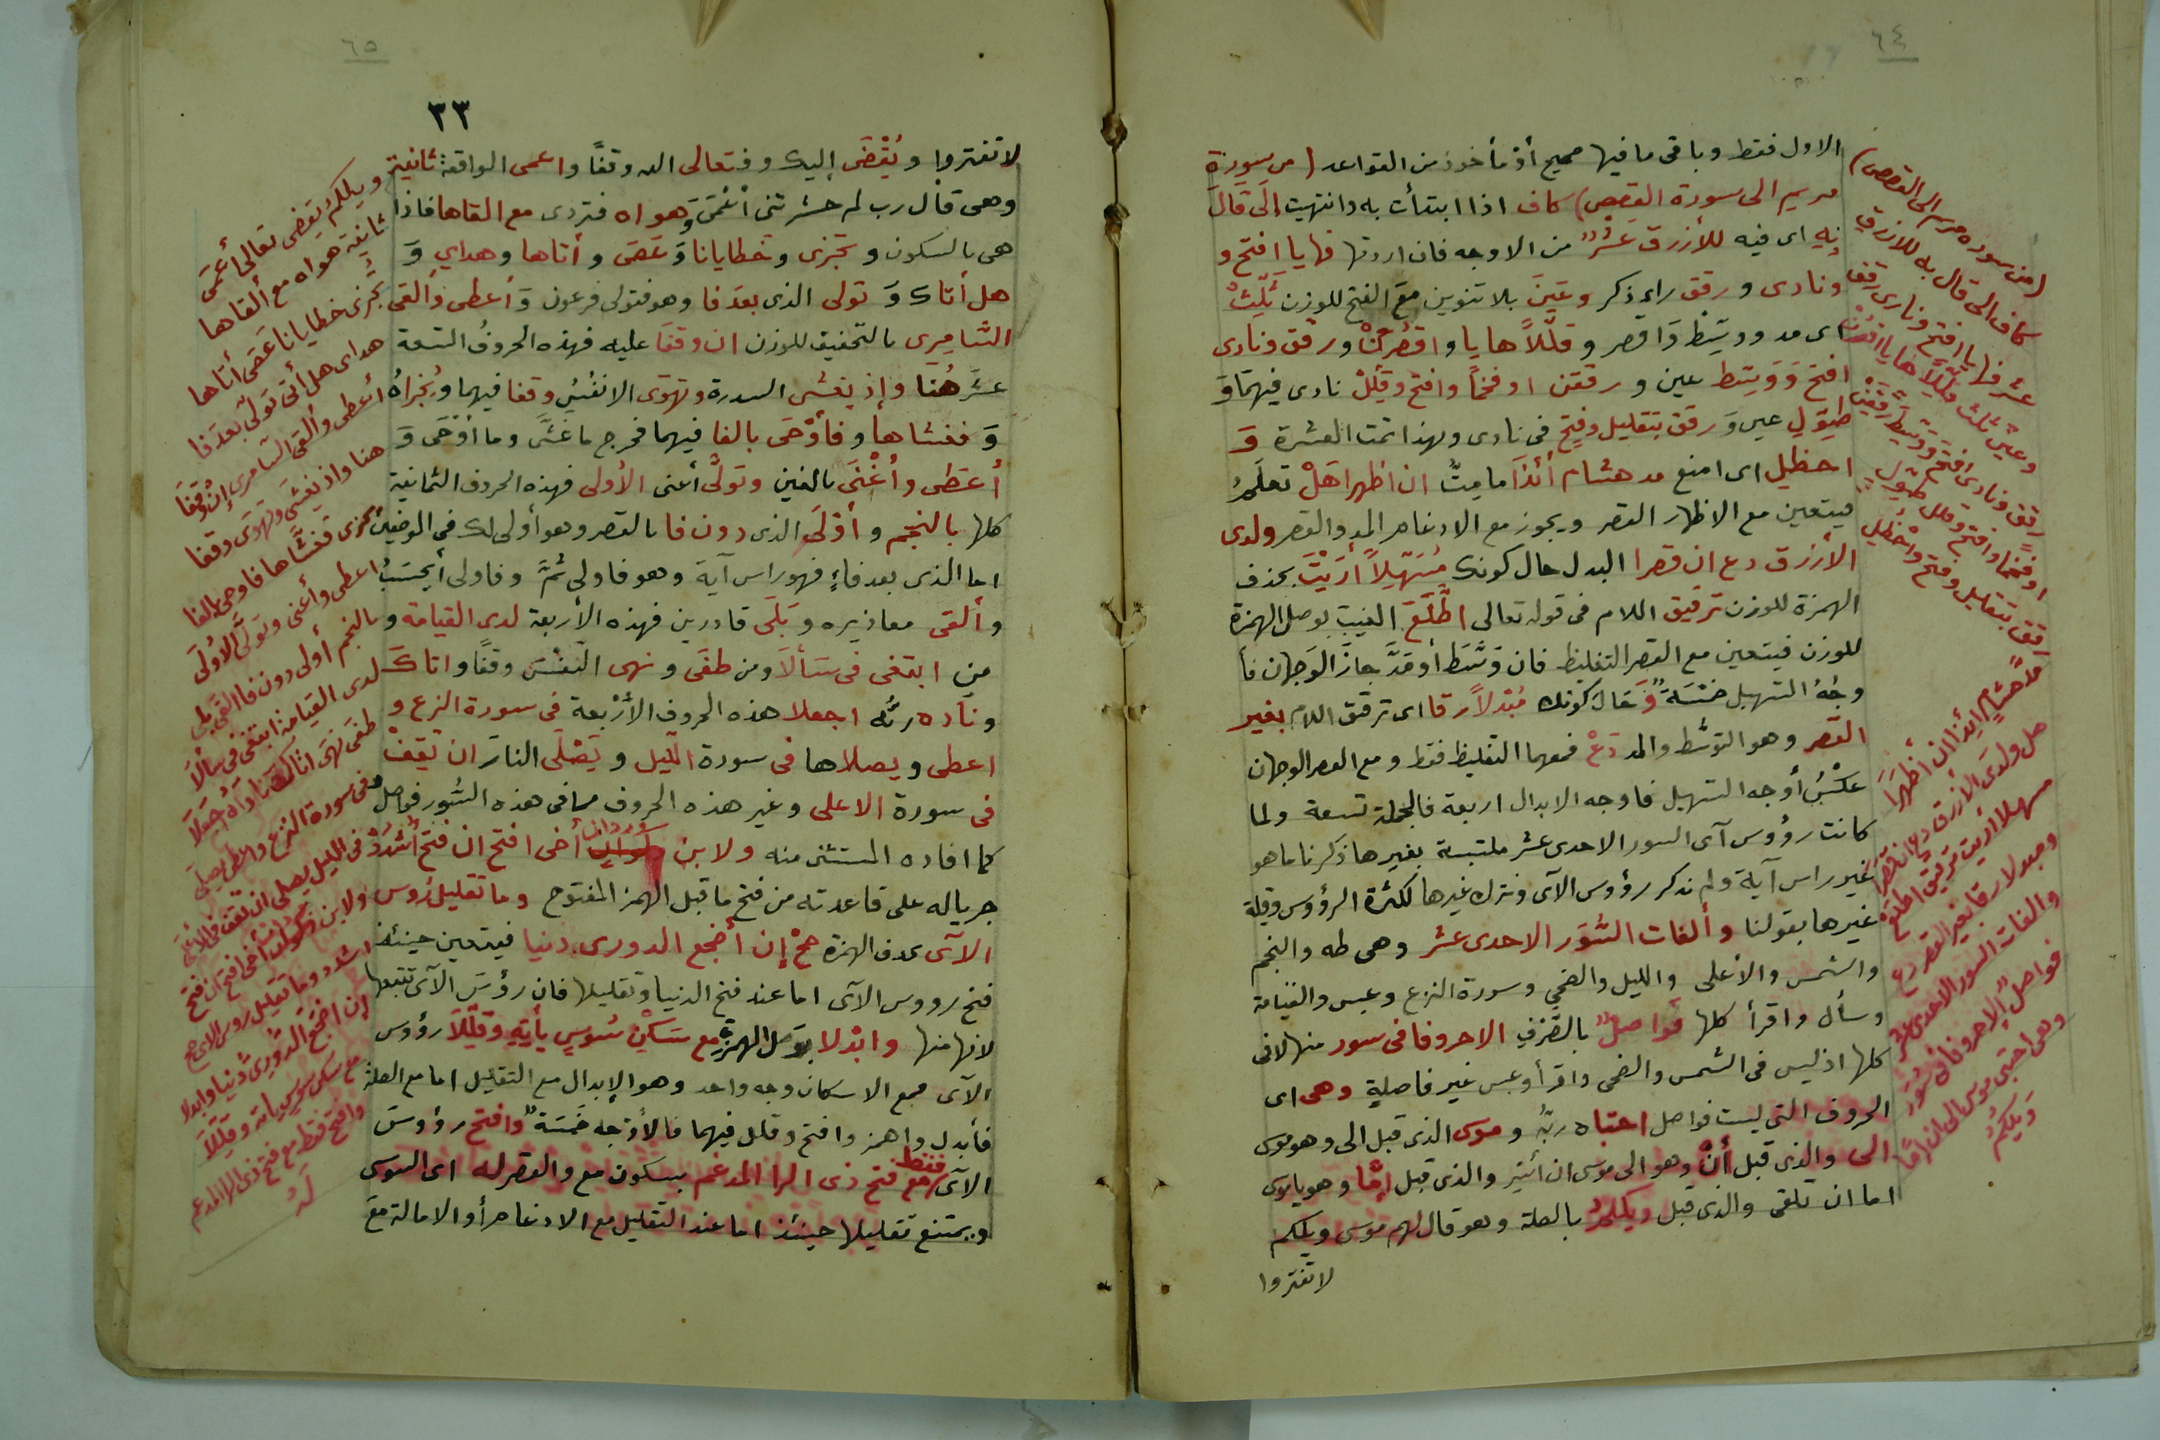 ٦٤
الاول فقط وباقى ما فيها صحيح أو مأخوذ من القواعد (من سورة
مريم الى سورة القصص) كاف اذا ابتدأت به وانتهيت إلى قال
به اى فيه للأزرق عشر من الاوجه فان اردتها فها يا افتح و
ونادى ورقق راء ذكر وعين بلا تنوين مع الفتح للوزن ثلث
اى مد ووسط واقصر وقللا ها يا واقصرن ورقق ونادى
افتح ووسط عين ورققن او فخما وافتح وقلل نادى فيهما و
طول عين ورقق بتقليل وفتح فى نادى وبهذا تمت العشرة و
احظل اى امنع مد هشام أئذا ما مت ان اظهرا هل تعلم
فيتعين مع الاظهار القصر ويجوز مع الادغام المد والقصر ولدى
الأزرق دع ان قصرا البدل حال كونك مسهلا أريت بحذف
الهمزة للوزن ترقيق اللام فى قوله تعالى اطلع الغيب بوصل الهمزة
للوزن فيتعين مع القصر التغليظ فان وسط أو مد جاز الوجهان فأ
وجه التسهيل خمسة وحال كونك مبدلا رقا اى ترقق اللام بغير
القصر وهو التوسط والمد دع فمعهما التغليظ فقط ومع القصر الوجهان
عكس أوجه التسهيل فاوجه الابدال اربعة فالجملة تسعة ولما
كانت رؤوس آى السور الاحدى عشر ملتبسة بغيرها ذكرنا ما هو
غير راس آية ولم نذكر رؤوس الآى ونترك غيرها لكثرة الرؤوس وقلة
غيرها بقولنا وألفات السور الاحدى عشر وهى طه والنجم
والشمس والأعلى والليل والضحى وسورة النزع وعبس والقيامة
وسأل واقرأ كلها فواصل بالصرف الاحروفا فى سور منها لا فى
كلها اذ ليس فى الشمس والضحى واقرأ وعبس غير فاصلة وهى اى
الحروف التى ليست فواصل اجتباه ربه وموسى الذى قبل الى وهو موسى
الى والذى قبل أن وهو الى موسى ان أسر والذى قبل إما وهو يا موسى
اما ان تلقى والذى قبل ويلكم بالصلة وهو قال لهم موسى ويلكم
لا تفتروا
(من سورة مريم الى القصص)
كاف الى قال به للازرق
عشر فها يا افتح ونادى رقق
وعين ثلث قللا ها يا اقصرن
رقق ونادى افتح ووسط رققن
او فخما وافتح وقلل طول
رقق بتقليل وفتح واحظل
مد هشام أئذا ان أظهرا
هل ولدى الأزرق دع ان قصرا
مسهلا أريت ترقيق اطلع
ومبدلا رقا بغير القصر دع
والفات السور الاحدى عشر
فواصل الاحروفا فى سور
وهى اجتبى موسى الى ان إما
ويلكم
٦٥
٣٣
لا تفتروا ويقضى إليك وفتعالى الله وقفا واعمى الواقعة ثانية
وهى قال رب لم حشرتنى أعمى وهواه فتردى مع القاها فاذا
هى بالسكون وتجزى وخطايانا وعصى وأتاها وهداي و
هل أتاك و تولى الذى بعد فا وهو فتولى فرعون و أعطى وألقى
السامرى بالتخفيف للوزن ان وقفا عليه فهذه الحروف التسعة
عشر هنا وإذ يغشى السدرة وتهوى الانفس وقفا فيهما ويجزاه
و فغشاها وفأوحى بالفا فيهما فخرج ما غشى وما اوحى و
أعطى وأغنى بالغين وتولى أعنى الأولى فهذه الحروف الثمانية
كلها بالنجم وأولى الذى دون فا بالقصر وهو أولى لك فى الموضعين
اما الذى بعد فاء فهو راس آية وهو فاولى ثم وفاولى أيحسب
وألقى معاذيره وبلى قادرين فهذه الأربعة لدى القيامة و
من ابتغى فى سألا ومن طغى ونهى النفس وقفا واتاك
وناداه ربه اجعلا هذه الحروف الأربعة فى سورة النزع و
اعطى ويصلاها فى سورة الليل ويصلى النار ان تقف
فى سورة الاعلى وغير هذه الحروف مما فى هذه السور فواصل
كما افاده المستثنى منه ولابن وردان أخى افتح ان فتح أشدد
جريا له على قاعدته من فتح ما قبل الهمز المفتوح وما تقليل رؤوس
الآى بحذف الهمزة صح إن أضجع الدورى دنيا فيتعين حينئذ
فتح رووس الآى اما عند فتح الدنيا وتقليلها فان رؤس الآى تتبعها
لانها منها وابدلا بوصل الهمزة مع سكن سوسى يأته وقللا رؤوس
الآى فمع الاسكان وجه واحد وهو الإبدال مع التقليل اما مع الصلة
فأبدل واهمز وافتح وقلل فيهما فالأوجه خمسة وافتح رؤوس
الآى فقط مع فتح ذى الرا المدغم بسكون مع والقصر له اى السوسى
ويمتنع تقليلها حينئذ اما عند التقليل مع الادغام أو الامالة مع
ويلكم يقضى تعالى أعمى
ثانية هواه مع ألقاها
تجزى خطايانا عصى أتاها
هداى هل أتى تولى بعد فا
أعطى وألقى السامرى إن وقفا
هنا واذ يغشى وتهوى وقفا
يجزى فغشاها فاوحى بالفا
اعطى وأغنى وتولى الاولى
بالنجم أولى دون فا القى بلى
لدى القيامة ابتغى فى سألا
طغى نهى اتاك ناداه اجعلا
فى سورة النزع واعطى يصلى
فى الليل يصلى ان تقف فى الاعلى
ولابن وردان أخى افتح ان فتح
اشدد وما تقليل روس الآى صح
إن اضجع الدورى دنيا وابدلا
مع سكن سوسى يأته وقللا
وافتح فقط مع فتح ذى الرا المدغم
له